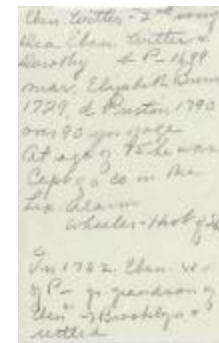 Eben Witter - 2nd
Dea Eben Witter &
Dorothy b P - 1699
mar. Elizabeth Brown
1729, d Preston 1790
over 90 yrs of age
At age of 75 he was
Capt of a co in the
Lex Alarm
Wheeler - Hist of
In 1762. Eben. W-
of P - gr grandson of
Eben - Brooklyn &
settled